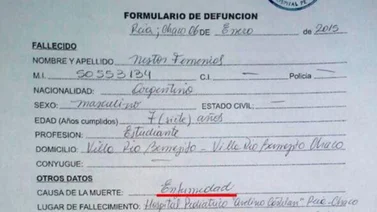 FORMULARIO DE DEFUNCION
Rcia; Chaco 06 DE Enero de 2015
FALLECIDO
NOMBRE Y APELLIDO Nestor Femenias
M.I. 50553134 C.I — Policia —
NACIONALIDAD: Argentino
SEXO: masculino ESTADO CIVIL: —
EDAD (Años cumplidos) 7 (siete) años
PROFESION: Estudiante
DOMICILIO Villa Rio Bermejito - Villa Rio Bermejito Chaco
CONYUGUE: —
OTROS DATOS
CAUSA DE LA MUERTE: Enfermedad
LUGAR DE FALLECIMIENTO: Hospital Pediatrico "Avelino Castelan" Rcia - Chaco